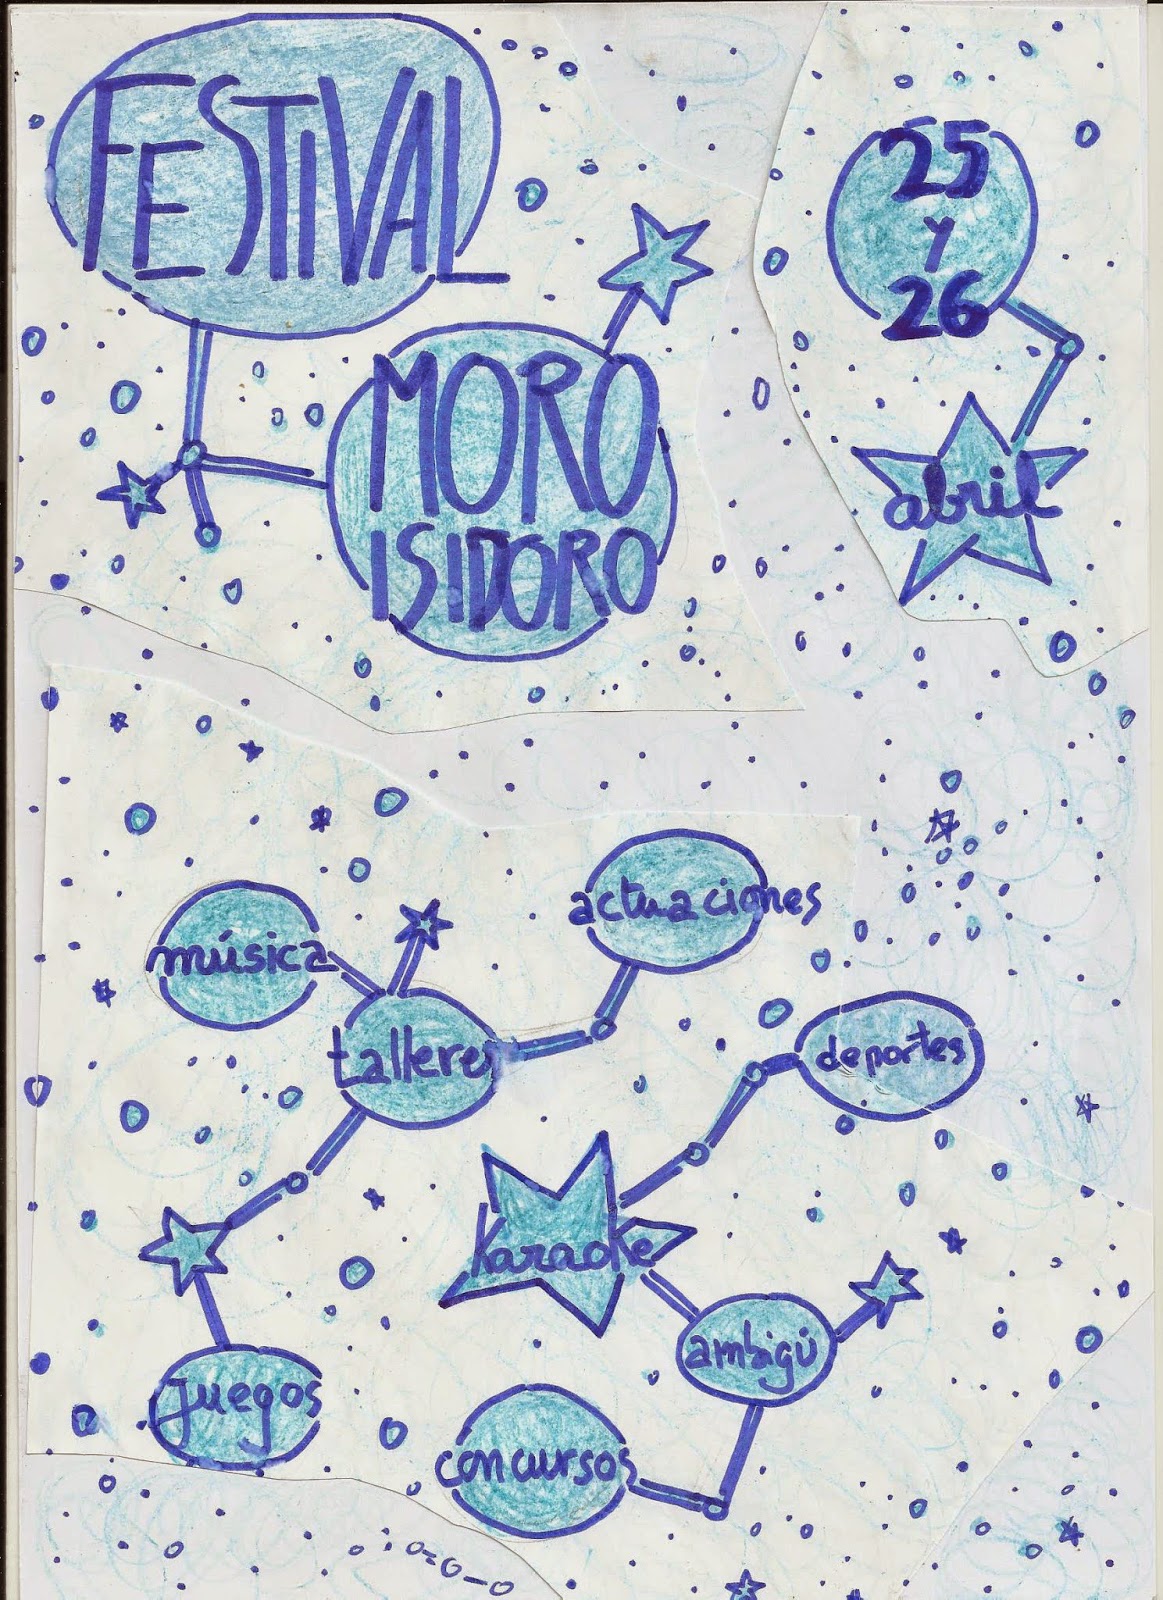 FESTIVAL
MORO
ISIDORO
25
y
26
abril
actuaciones
música
talleres
deportes
karaoke
ambigú
juegos
concursos